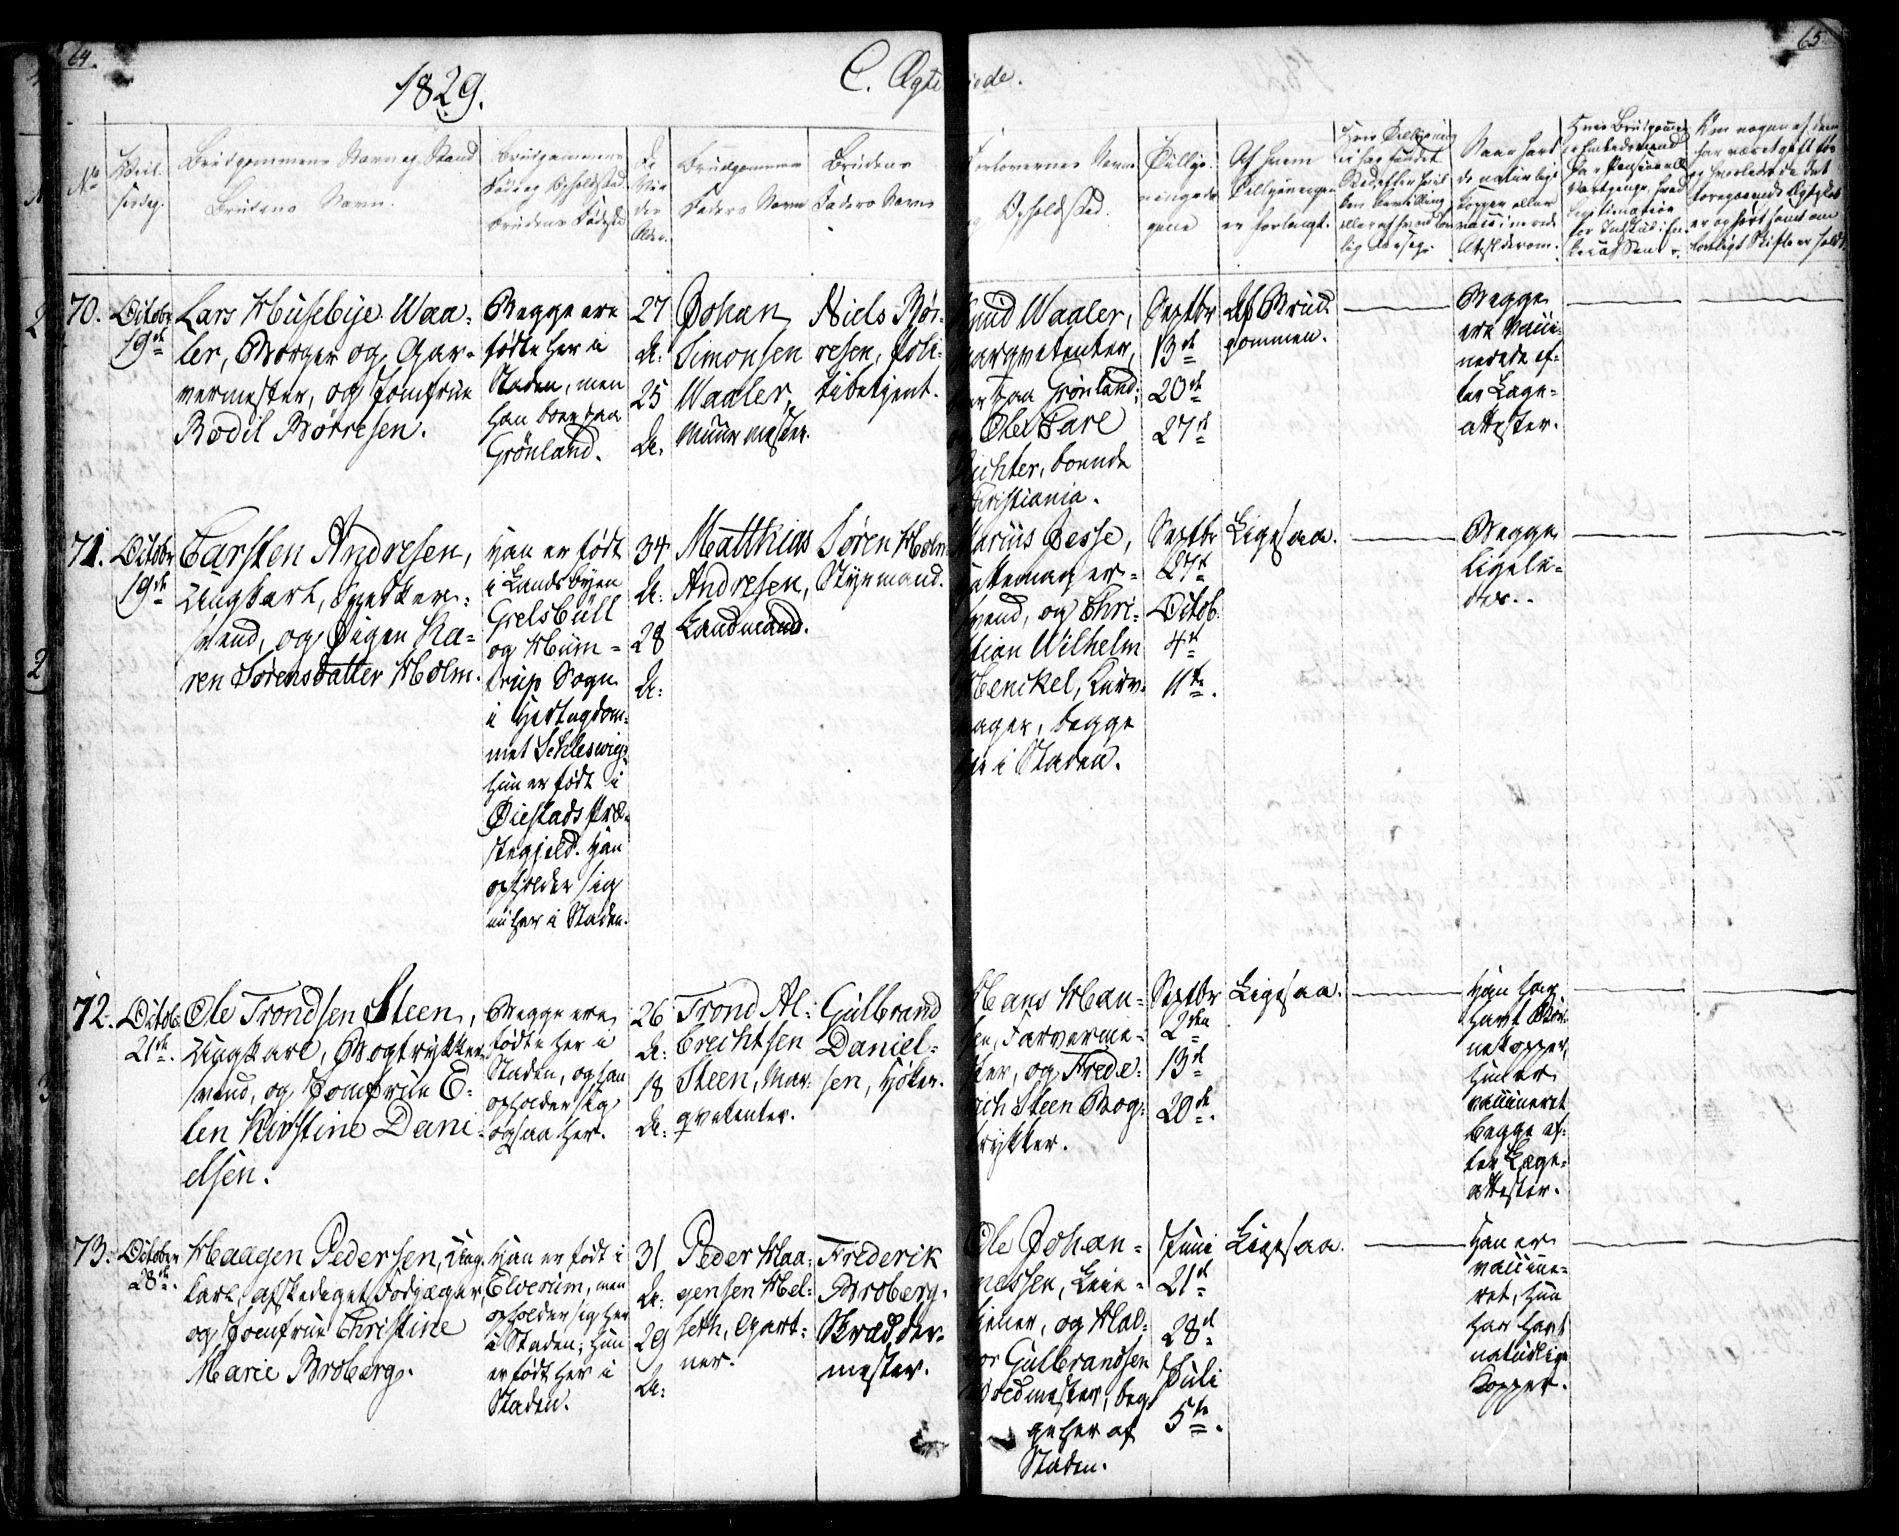 64.
65.
1829.
C. Ægteviede.
No
Brudgommens Navn og Stand
Brudens Navn.
Brudgommens
Føde og Opholdsted
Brudens Fødested
Brudgommens
Faders Navn
Brudens
Faders Navn
Forlovernes Navne
og Opholdsted.
Af hvem
Tillysningen
er forlangt.
70.
Octobr
19de
Lars Husebye Waa-
ler, Borger og Gar-
vermester, og Jomfrue
Bodil Børresen.
Begge ere
fødte her i
Staden, men
han boer paa
Grönland.
27
A:
25
A:
Johan
Simonsen
Waaler,
Muurmester.
Niels Bør-
resen, Poli-
tibetjent.
Knud Waaler,
Marqvetenter,
boer paa Grönland;
Ole Carl
Richter, boende
Christiania.
Septbr
13de
20de
27de
Af Brud-
gommen.
Begge
ere vacci-
nerede ef-
ter Læge-
attester.
71.
Octobr
19de
Carsten Andresen,
Ungkarl, Snedker-
svend, og Pigen Ka-
ren Sørensdatter Holm.
Han er født
i Landsbyen
Grelsbüll
og Hum-
trup Sogn
i Hertugdom-
met Schleswig;
hun er født i
Øiestads Præ-
stegjeld. Han
opholder sig
nu her i Staden.
34
A:
28
A:
Matthias
Andresen,
Landmand.
Søren Holm
Styrmand.
Marius Jesse,
svend, og Chri-
stian Wilhelm
Henckel, Kurv-
mager, begge
her i Staden.
Septbr
27de
Octob.
4de
11te.
Ligesaa.
Begge
ligele-
des.
72.
Octob.
21de.
Ole Trondsen Steen,
Ungkarl, Bogtrykker-
svend, og Jomfrue E-
len Kirstine Dani-
elsen.
Begge ere
fødte her i
Staden, og han
opholder sig
ogsaa her.
26
A:
18
A:
Trond Al-
brechtsen
Steen, Mar-
qvetenter.
Gulbrand
Daniel-
sen, Høker.
Hans Han-
sen, Farverme-
ster, og Frede-
rich Steen Bog-
trykker.
Septbr
13de
20de.
Ligesaa.
Han har
havt Bør-
nekopper,
hun er
vaccineret
begge ef-
ter Læge-
attester.
73.
October
28de.
Haagen Pedersen, Ung-
karl, afskediget Fodjæger,
og Jomfrue Christine
Marie Broberg.
Han er født i
Elverum, men
opholder sig her
i Staden; hun
er født her i
Staden.
31
A:
29
A:
Peder Haa-
gensen Hel-
seth, Gart-
ner.
Frederik
Broberg,
Skrædder-
mester.
Ole Johan-
nessen, Leie-
tjener, og Hal-
vor Gulbrandsen
begge her af
Staden.
Juni
21de
28de
Juli
5te.
Ligesaa.
Han er
vaccine-
ret, hun
har havt
naturlige
Kopper.